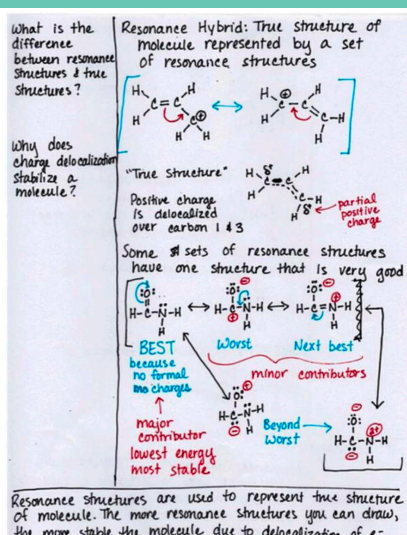 What is the
difference
between resonance
structures & true
structures?
Why does
charge delocalization
stabilize a
molecule?
Resonance Hybrid: True structure of
molecule represented by a set
of resonance structures
"True Structure"
Positive charge
is delocalized
over carbon 1 & 3
partial
positive
charge
Some sets of resonance structures
have one structure that is very good
BEST
because
no formal
charges
Worst
Next best
minor contributors
major
contributor
lowest energy
most stable
Beyond
Worst
Resonance structures are used to represent true structure
of molecule. The more resonance structures you can draw,
the more stable the molecule due to delocalization of e-